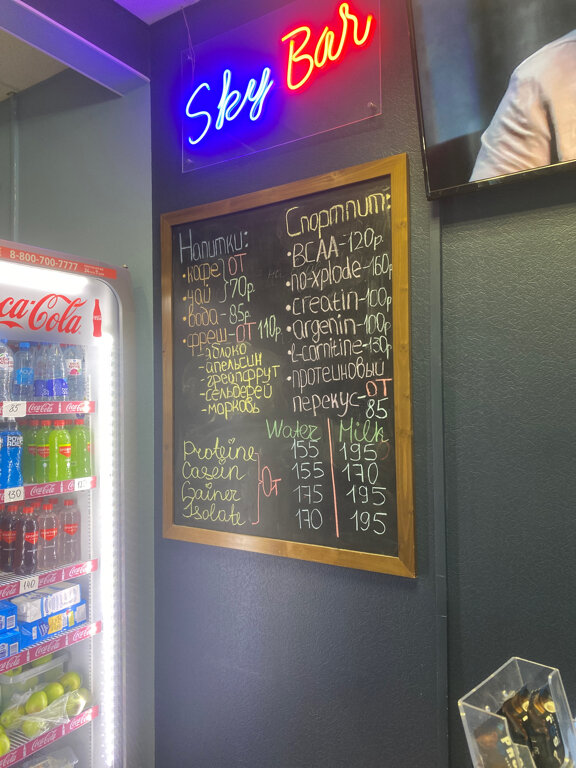 Sky Bar
Напитки:
• кофе ОТ
• чай 70р.
• вода - 85р
• фреш - ОТ 110р.
- яблоко
- апельсин
- грейпфрут
- сельдерей
- морковь
Спортпит:
• BCAA - 120р.
• no-xplode - 160р
• creatin - 100р
• argenin - 100р
• L-carnitine - 130р
• протеиновый
перекус - ОТ
85
Water Milk
Proteine 155 195
Casein 155 170
От
Gainer 175 195
Isolate 170 195
8-800-700-7777
Coca-Cola
85
Coca-Cola
130
Coca-Cola
140
Coca-Cola
Coca-Cola
Coca-Cola